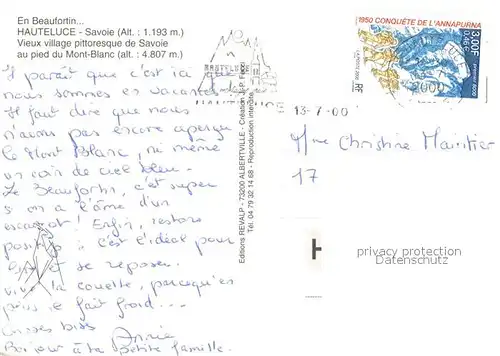 En Beaufortin...
HAUTELUCE - Savoie (Alt. : 1.193 m.)
Vieux village pittoresque de Savoie
au pied du Mont-Blanc (alt. : 4.807 m.)
Il paraît que c'est ici que
nous sommes en vacances.
Il faut dire que nous
n'avons pas encore aperçu
le Mont Blanc, ni même
un coin de ciel bleu.
Le Beaufortin, c'est super
si on a l'âme d'un
escargot ! Enfin, restons
positifs : c'est l'idéal pour
et se reposer.
Vive la couette, puisqu'en
plus le fait froid...
Grosses bises
Annie
Bonjour à ta petite famille.
Editions REVALP - 73200 ALBERTVILLE - Création J.-P. 
Tél. 04 79 32 14 68 - Reproduction interdite
HAUTELUCE
1950 CONQUÊTE DE L'ANNAPURNA
3,00F
0,46€
RF
LA POSTE 2000
2000
13-7-00
Mme Christine
17
privacy protection
Datenschutz